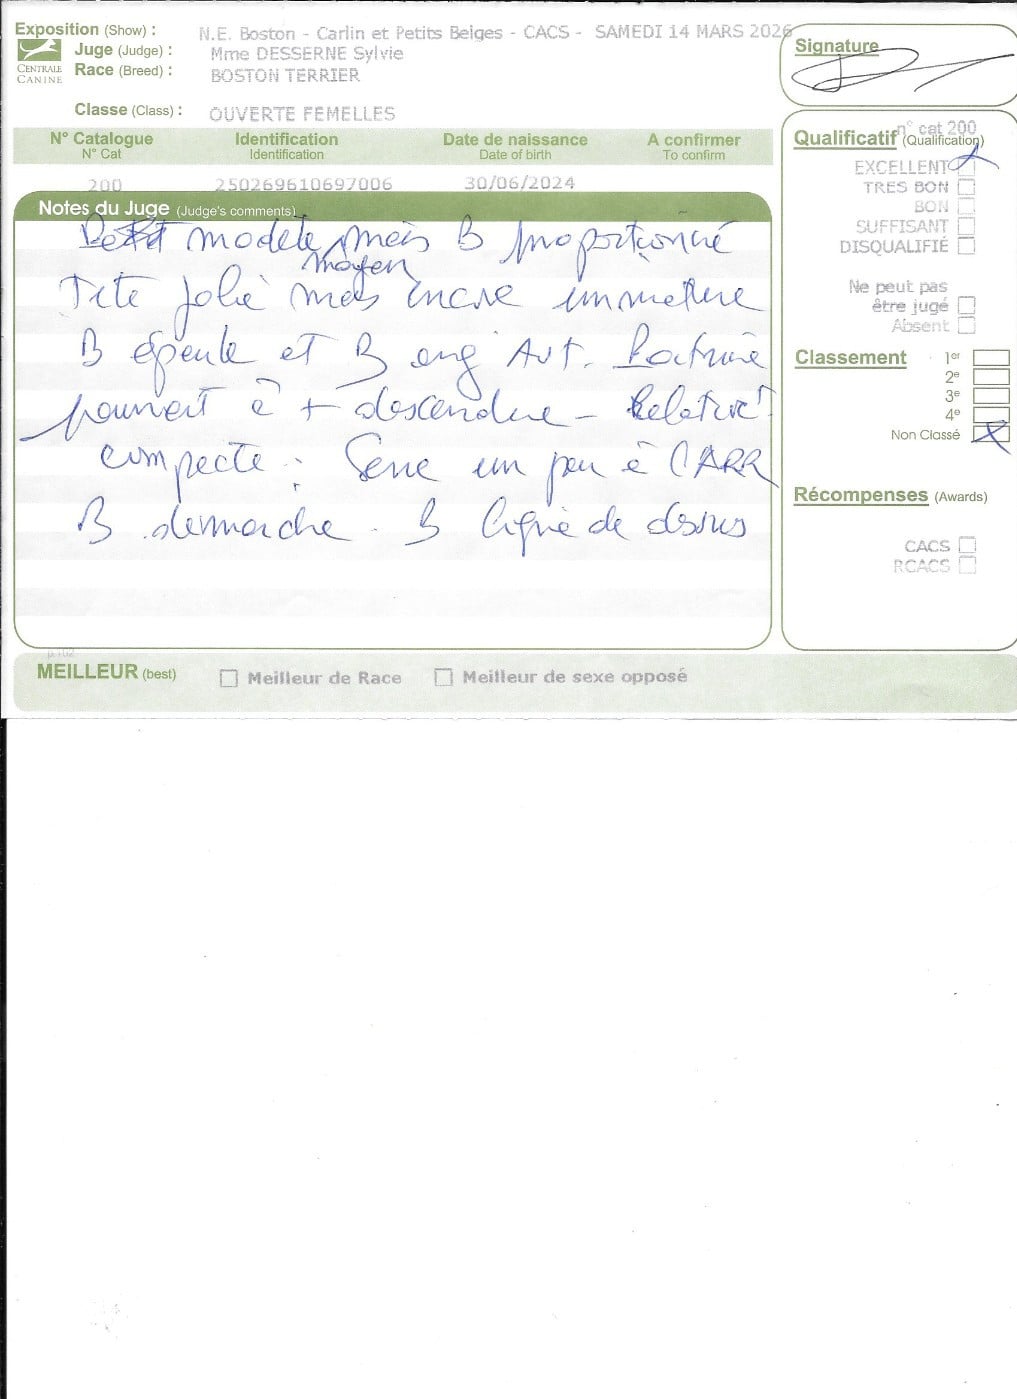 Exposition (Show) : N.E. Boston - Carlin et Petits Belges - CACS - SAMEDI 14 MARS 2026
Juge (Judge) : Mme DESSERNE Sylvie
Race (Breed) : BOSTON TERRIER
CENTRALE
CANINE
Classe (Class) : OUVERTE FEMELLES
N° Catalogue Identification Date de naissance A confirmer
N° Cat Identification Date of birth To confirm
200 250269610697006 30/06/2024
Notes du Juge (Judge's comments)
modèle mais B proportionné
moyen
Tête jolie mais encore immature
B épaule et B ang AVT. Poitrine
pourrait ê + descendue - Relativt
compacte. Serre un peu à l'ARR
B démarche. B ligne de dessus
MEILLEUR (best) Meilleur de Race Meilleur de sexe opposé
Signature
n° cat 200
Qualificatif (Qualification)
EXCELLENT
TRES BON
BON
SUFFISANT
DISQUALIFIÉ
Ne peut pas
être jugé
Absent
Classement 1er
2e
3e
4e
Non Classé
Récompenses (Awards)
CACS
RCACS